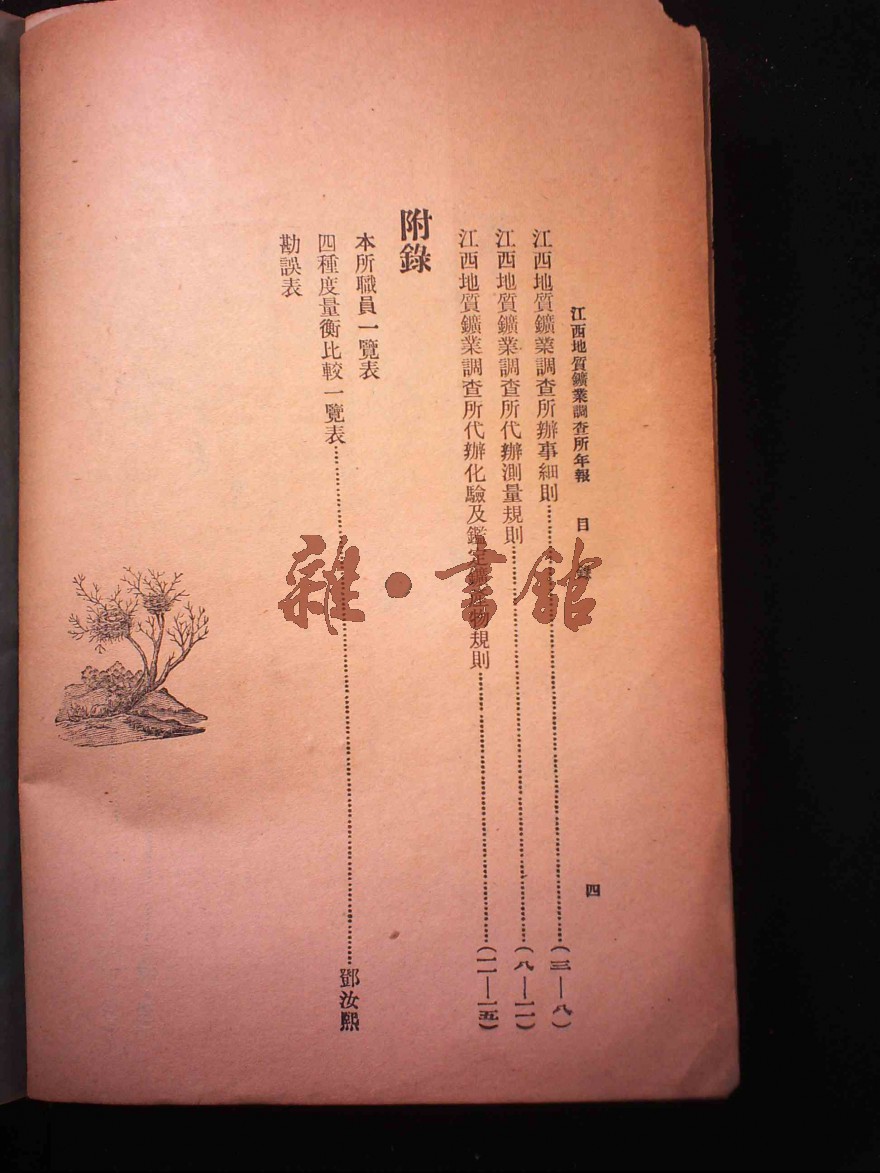 江西地質鑛業調查所年報 目錄 四
江西地質鑛業調查所辦事細則(三—八)
江西地質鑛業調查所代辦測量規則(八—一一)
江西地質鑛業調查所代辦化驗及鑑定鑛物規則(一一—一五)
附錄
本所職員一覽表
四種度量衡比較一覽表鄧汝熙
勘誤表
雜·書館